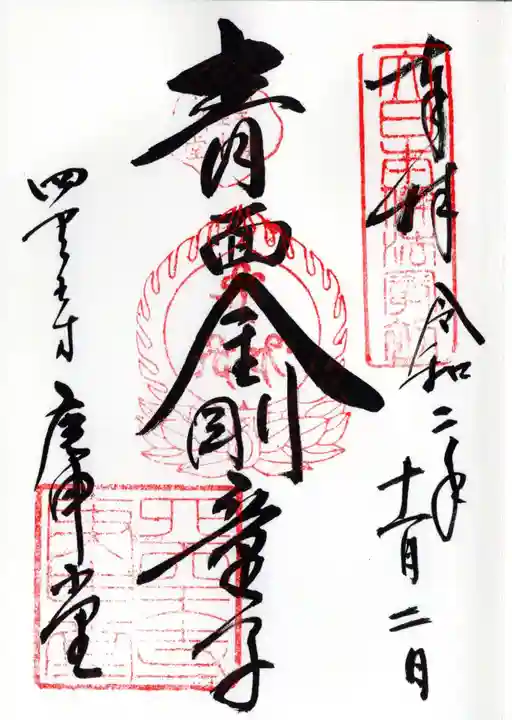 奉拝 令和二年十一月二日
青面金剛童子
四天王寺 庚申堂